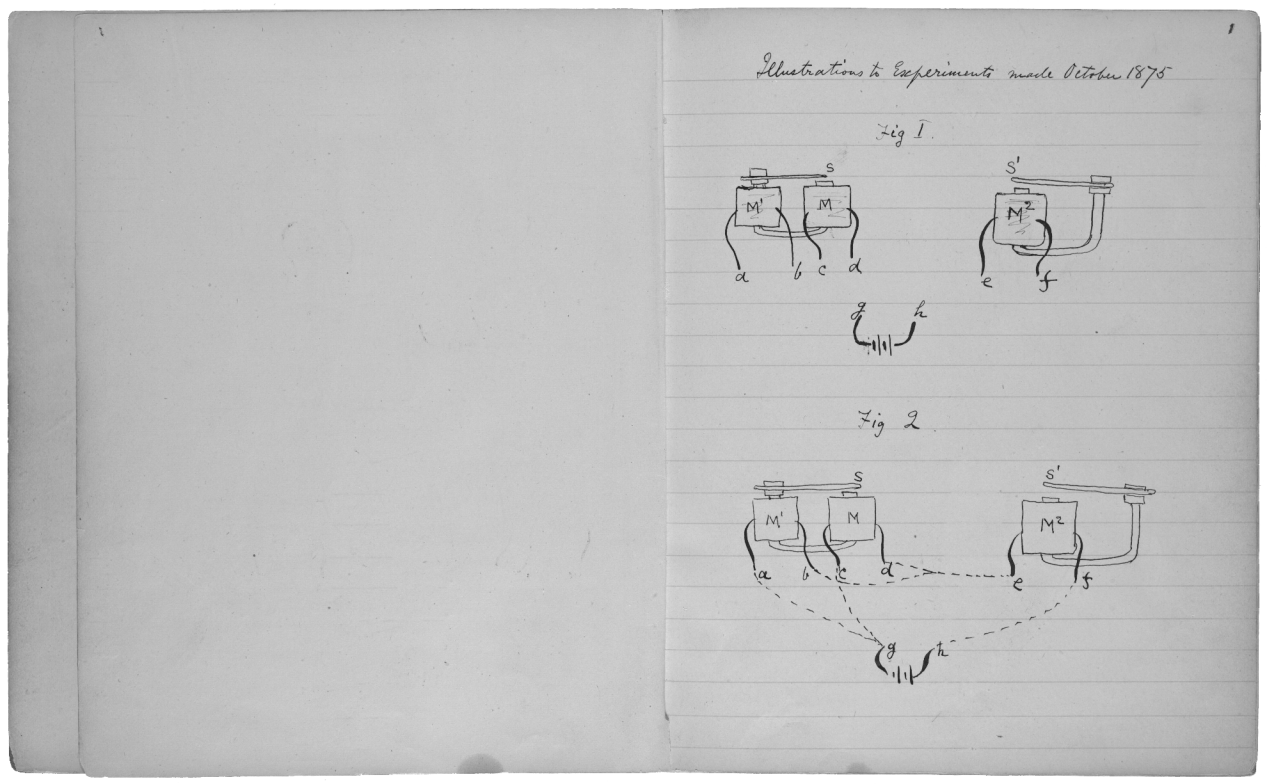 1
Illustrations to Experiments made October 1875
Fig 1.
S S'
M' M M²
a b c d e f
g h
Fig 2
S S'
M' M M²
a b c d e f
g h